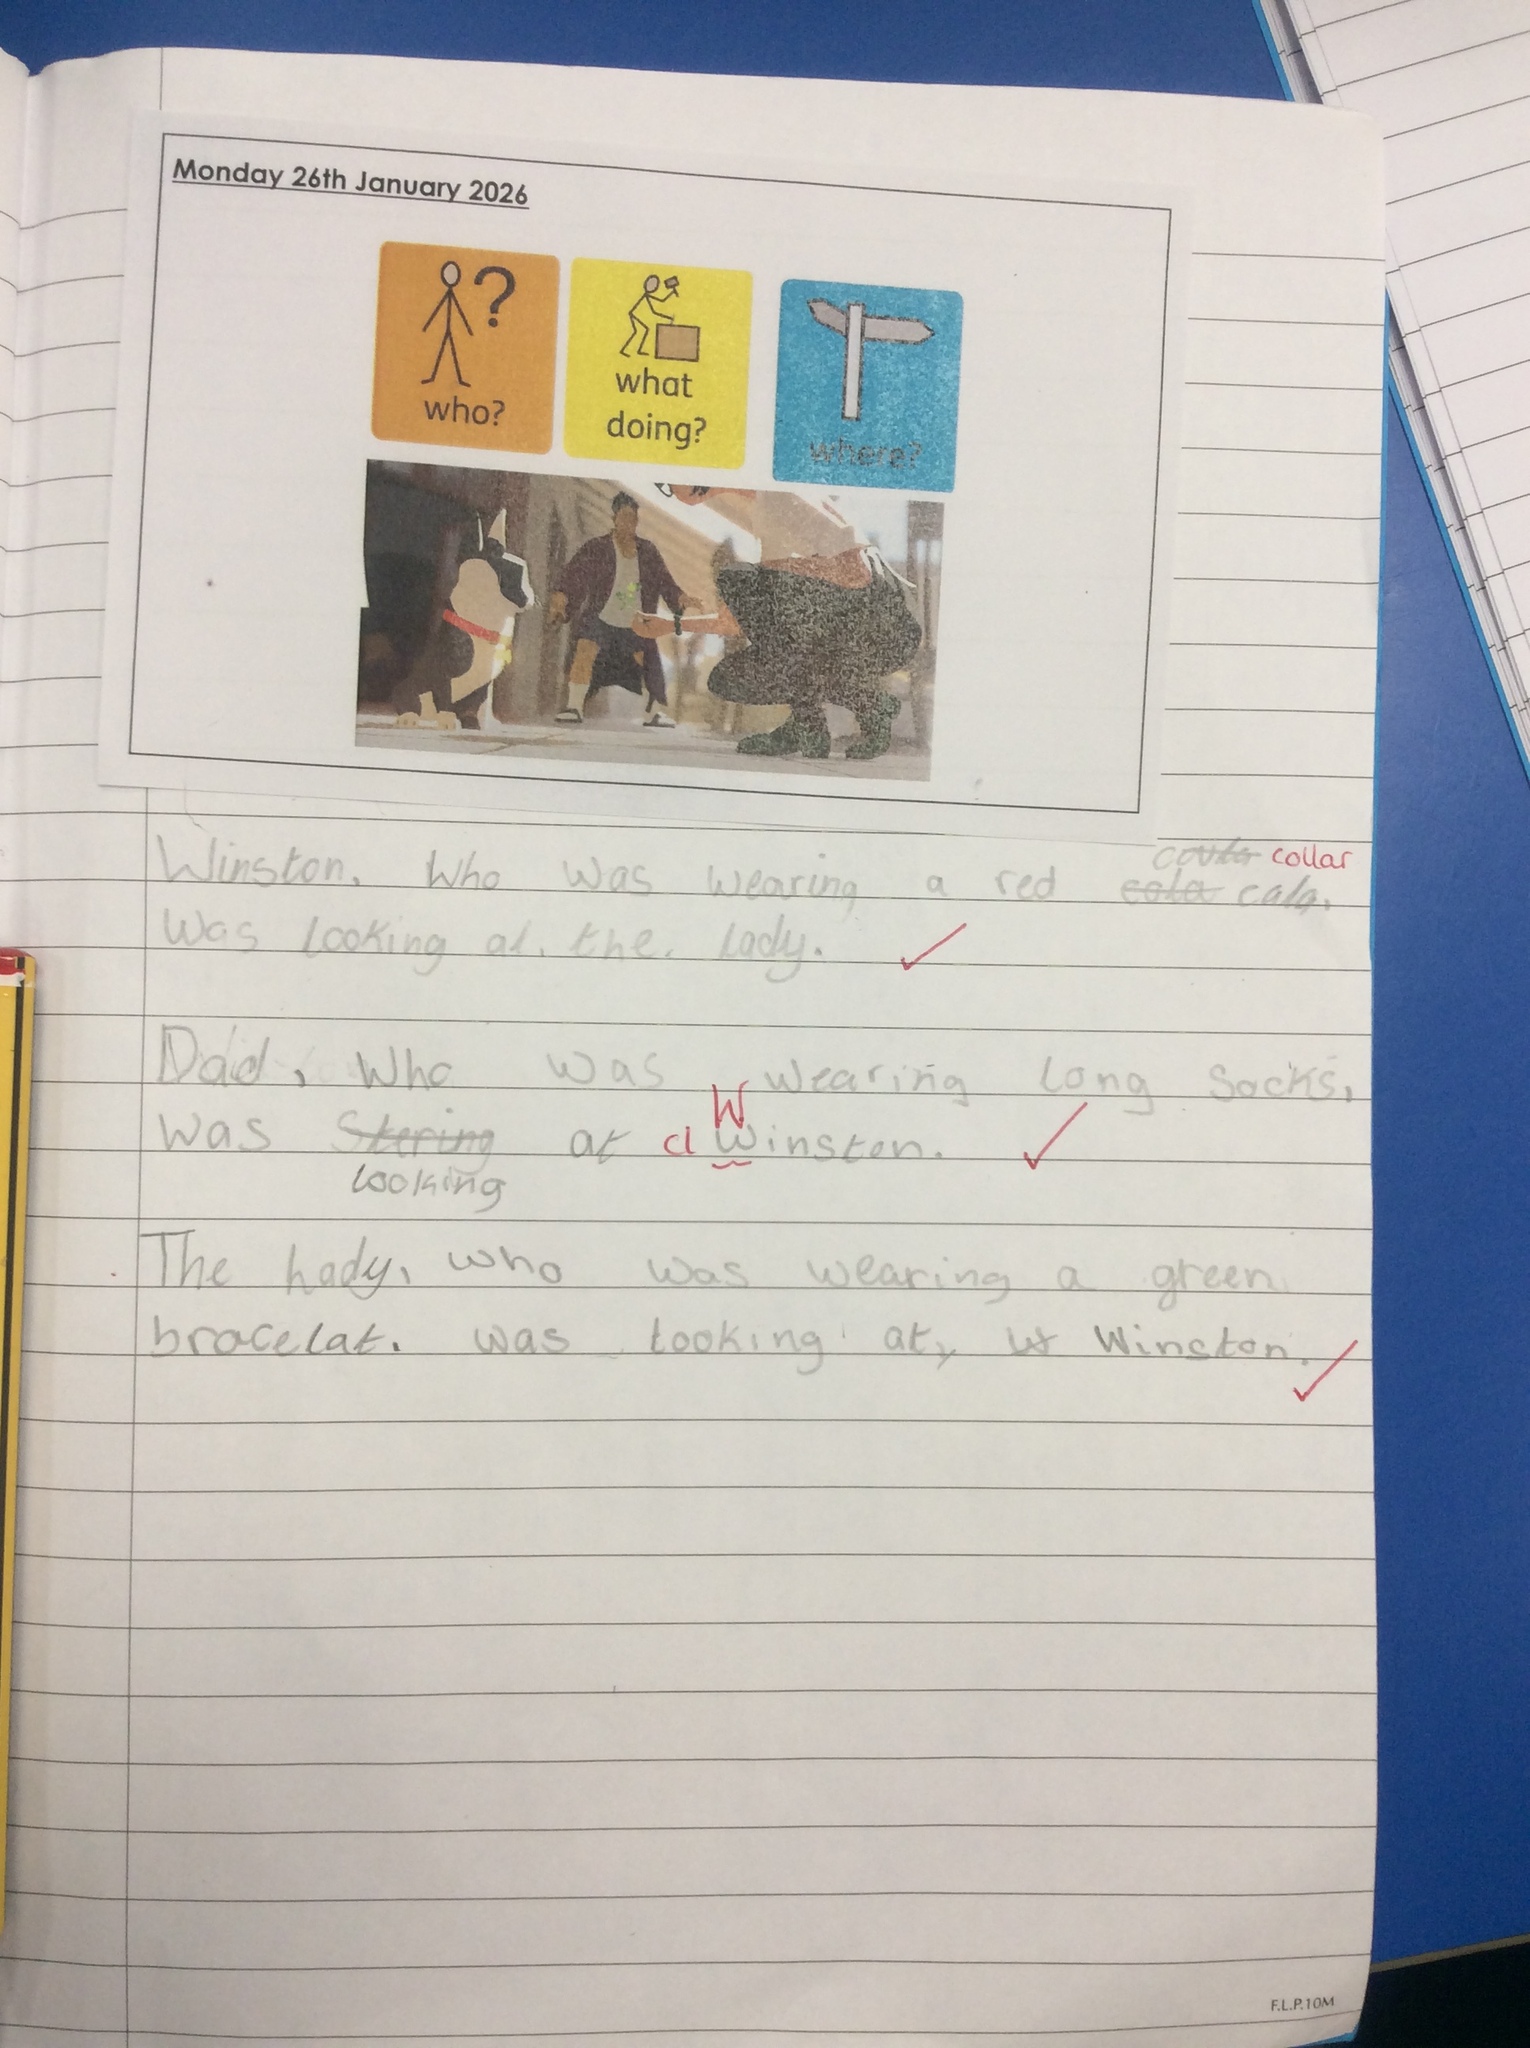 Monday 26th January 2026
who?
what
doing?
where?
couta collar
Winston, Who was wearing a red cola cala,
was looking at. the. lady.
Dad, Who was wearing long socks,
W
was Stering at cl winston.
looking
The hady, who was wearing a green
bracelat. was looking at, w Winston.
F.L.P.10M